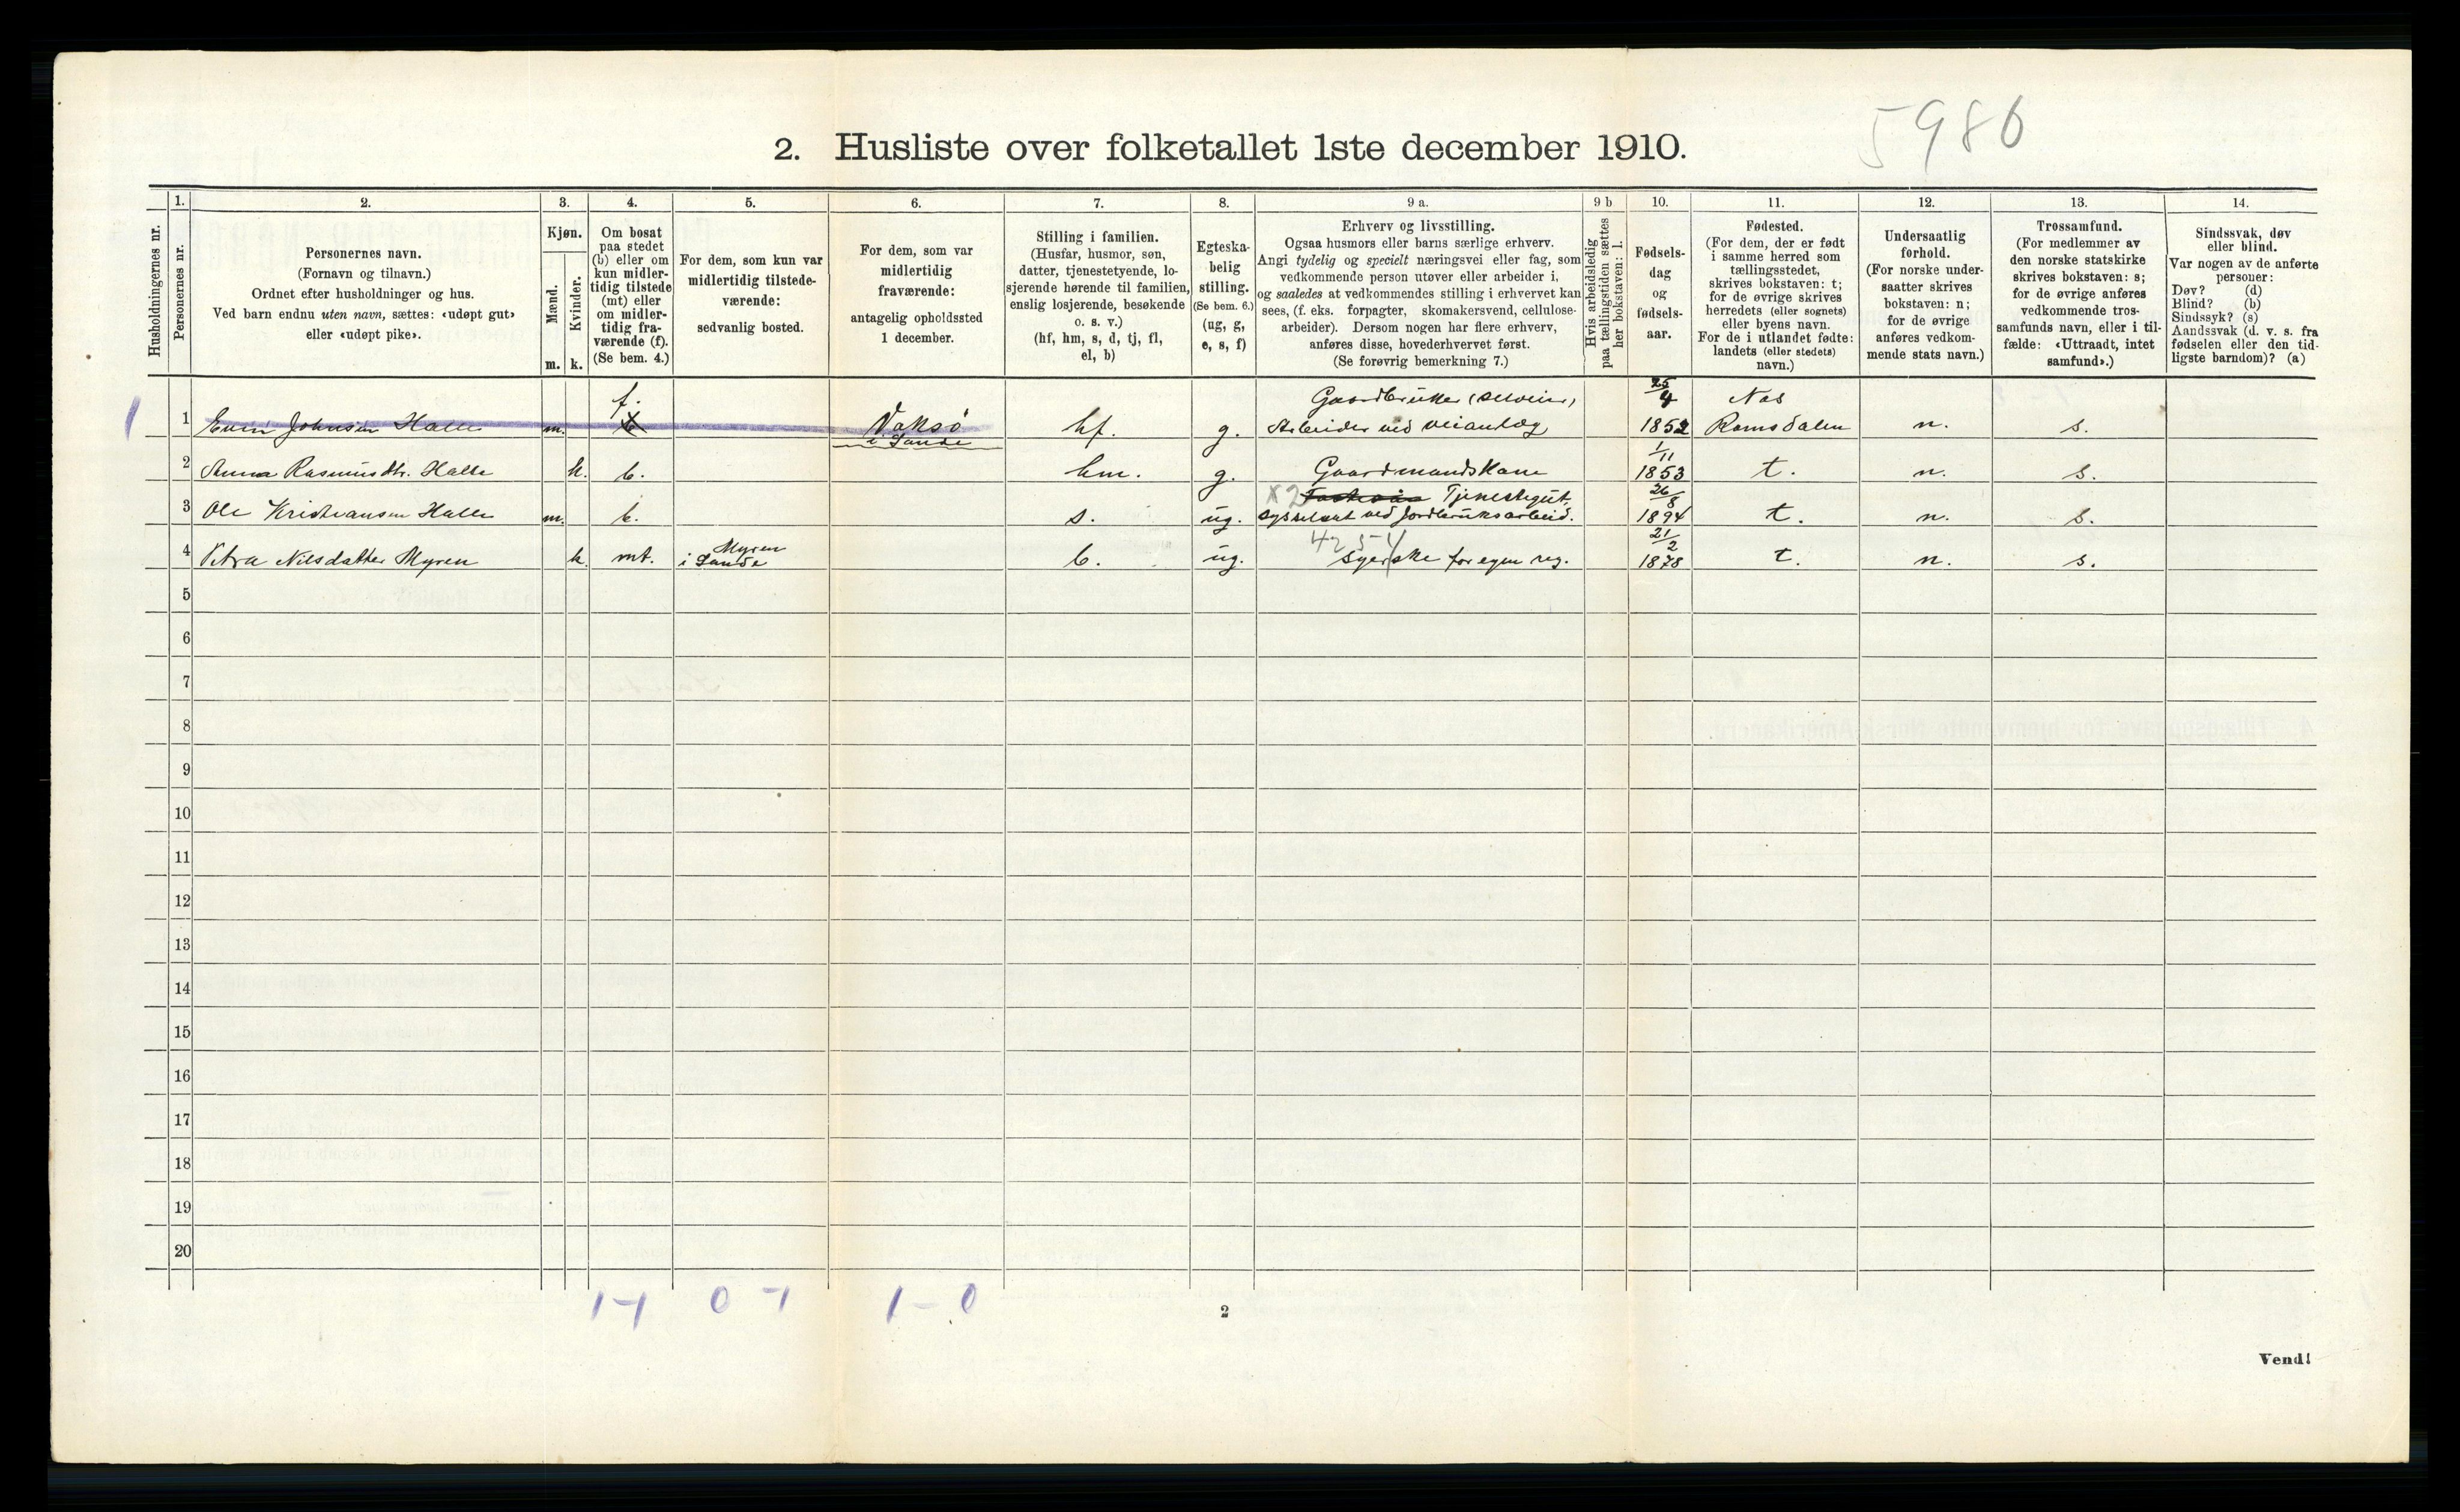 5986
2. Husliste over folketallet 1ste december 1910.
Husholdningernes nr.
1.
Personernes nr.
2.
Personernes navn.
(Fornavn og tilnavn.)
Ordnet efter husholdninger og hus.
Ved barn endnu uten navn, sættes: «udøpt gut»
eller «udøpt pike».
3.
Kjøn.
Mænd.
Kvinder.
m. k.
4.
Om bosat
paa stedet
(b) eller om
kun midler-
tidig tilstede
(mt) eller
om midler-
tidig fra-
værende (f).
(Se bem. 4.)
5.
For dem, som kun var
midlertidig tilstede-
værende:
sedvanlig bosted.
6.
For dem, som var
midlertidig
fraværende:
antagelig opholdssted
1 december.
7.
Stilling i familien.
(Husfar, husmor, søn,
datter, tjenestetyende, lo-
sjerende hørende til familien,
enslig losjerende, besøkende
o. s. v.)
(hf, hm, s, d, tj, fl,
el, b)
8.
Egteska-
belig
stilling.
(Se bem. 6.)
(ug, g,
e, s, f)
9 a.
Erhverv og livsstilling.
Ogsaa husmors eller barns særlige erhverv.
Angi tydelig og specielt næringsvei eller fag, som
vedkommende person utøver eller arbeider i,
og saaledes at vedkommendes stilling i erhvervet kan
sees, (f. eks. forpagter, skomakersvend, cellulose-
arbeider). Dersom nogen har flere erhverv,
anføres disse, hovederhvervet først.
(Se forøvrig bemerkning 7.)
9 b
Hvis arbeidsledig
paa tællingstiden sættes
her bokstaven: l.
10.
Fødsels-
dag
og
fødsels-
aar.
11.
Fødested.
(For dem, der er født
i samme herred som
tællingsstedet,
skrives bokstaven: t;
for de øvrige skrives
herredets (eller sognets)
eller byens navn.
For de i utlandet fødte:
landets (eller stedets)
navn.)
12.
Undersaatlig
forhold.
(For norske under-
saatter skrives
bokstaven: n;
for de øvrige
anføres vedkom-
mende stats navn.)
13.
Trossamfund.
(For medlemmer av
den norske statskirke
skrives bokstaven: s;
for de øvrige anføres
vedkommende tros-
samfunds navn, eller i til-
fælde: «Uttraadt, intet
samfund».)
14.
Sindssvak, døv
eller blind.
Var nogen av de anførte
personer:
Døv? (d)
Blind? (b)
Sindssyk? (s)
Aandssvak (d. v. s. fra
fødselen eller den tid-
ligste barndom)? (a)
f. Gaardbruker (selveier) 25/4 Nes
1 1 Johnsen Halle m. b Vaksø i Sande hf. g. Arbeider ved veianlæg 1852 Romsdalen n. s.
2 Anna Rasmusdtr. Halle k. b. hm. g. Gaardmandskone 1/11 1853 t. n. s.
x2 Tjenestegut,
3 Ole Kristiansen Halle m. b. s. ug. sysselsat ved jordbruksarbeid. 26/8 1894 t. n. s.
4 Petra Nilsdatter Myren k. mt. Myren i Sande b. ug. syerske for egen reg. 21/2 1878 t. n. s.
5
6
7
8
9
10
11
12
13
14
15
16
17
18
19
20
1-1 0-1 1-0
2
Vend!